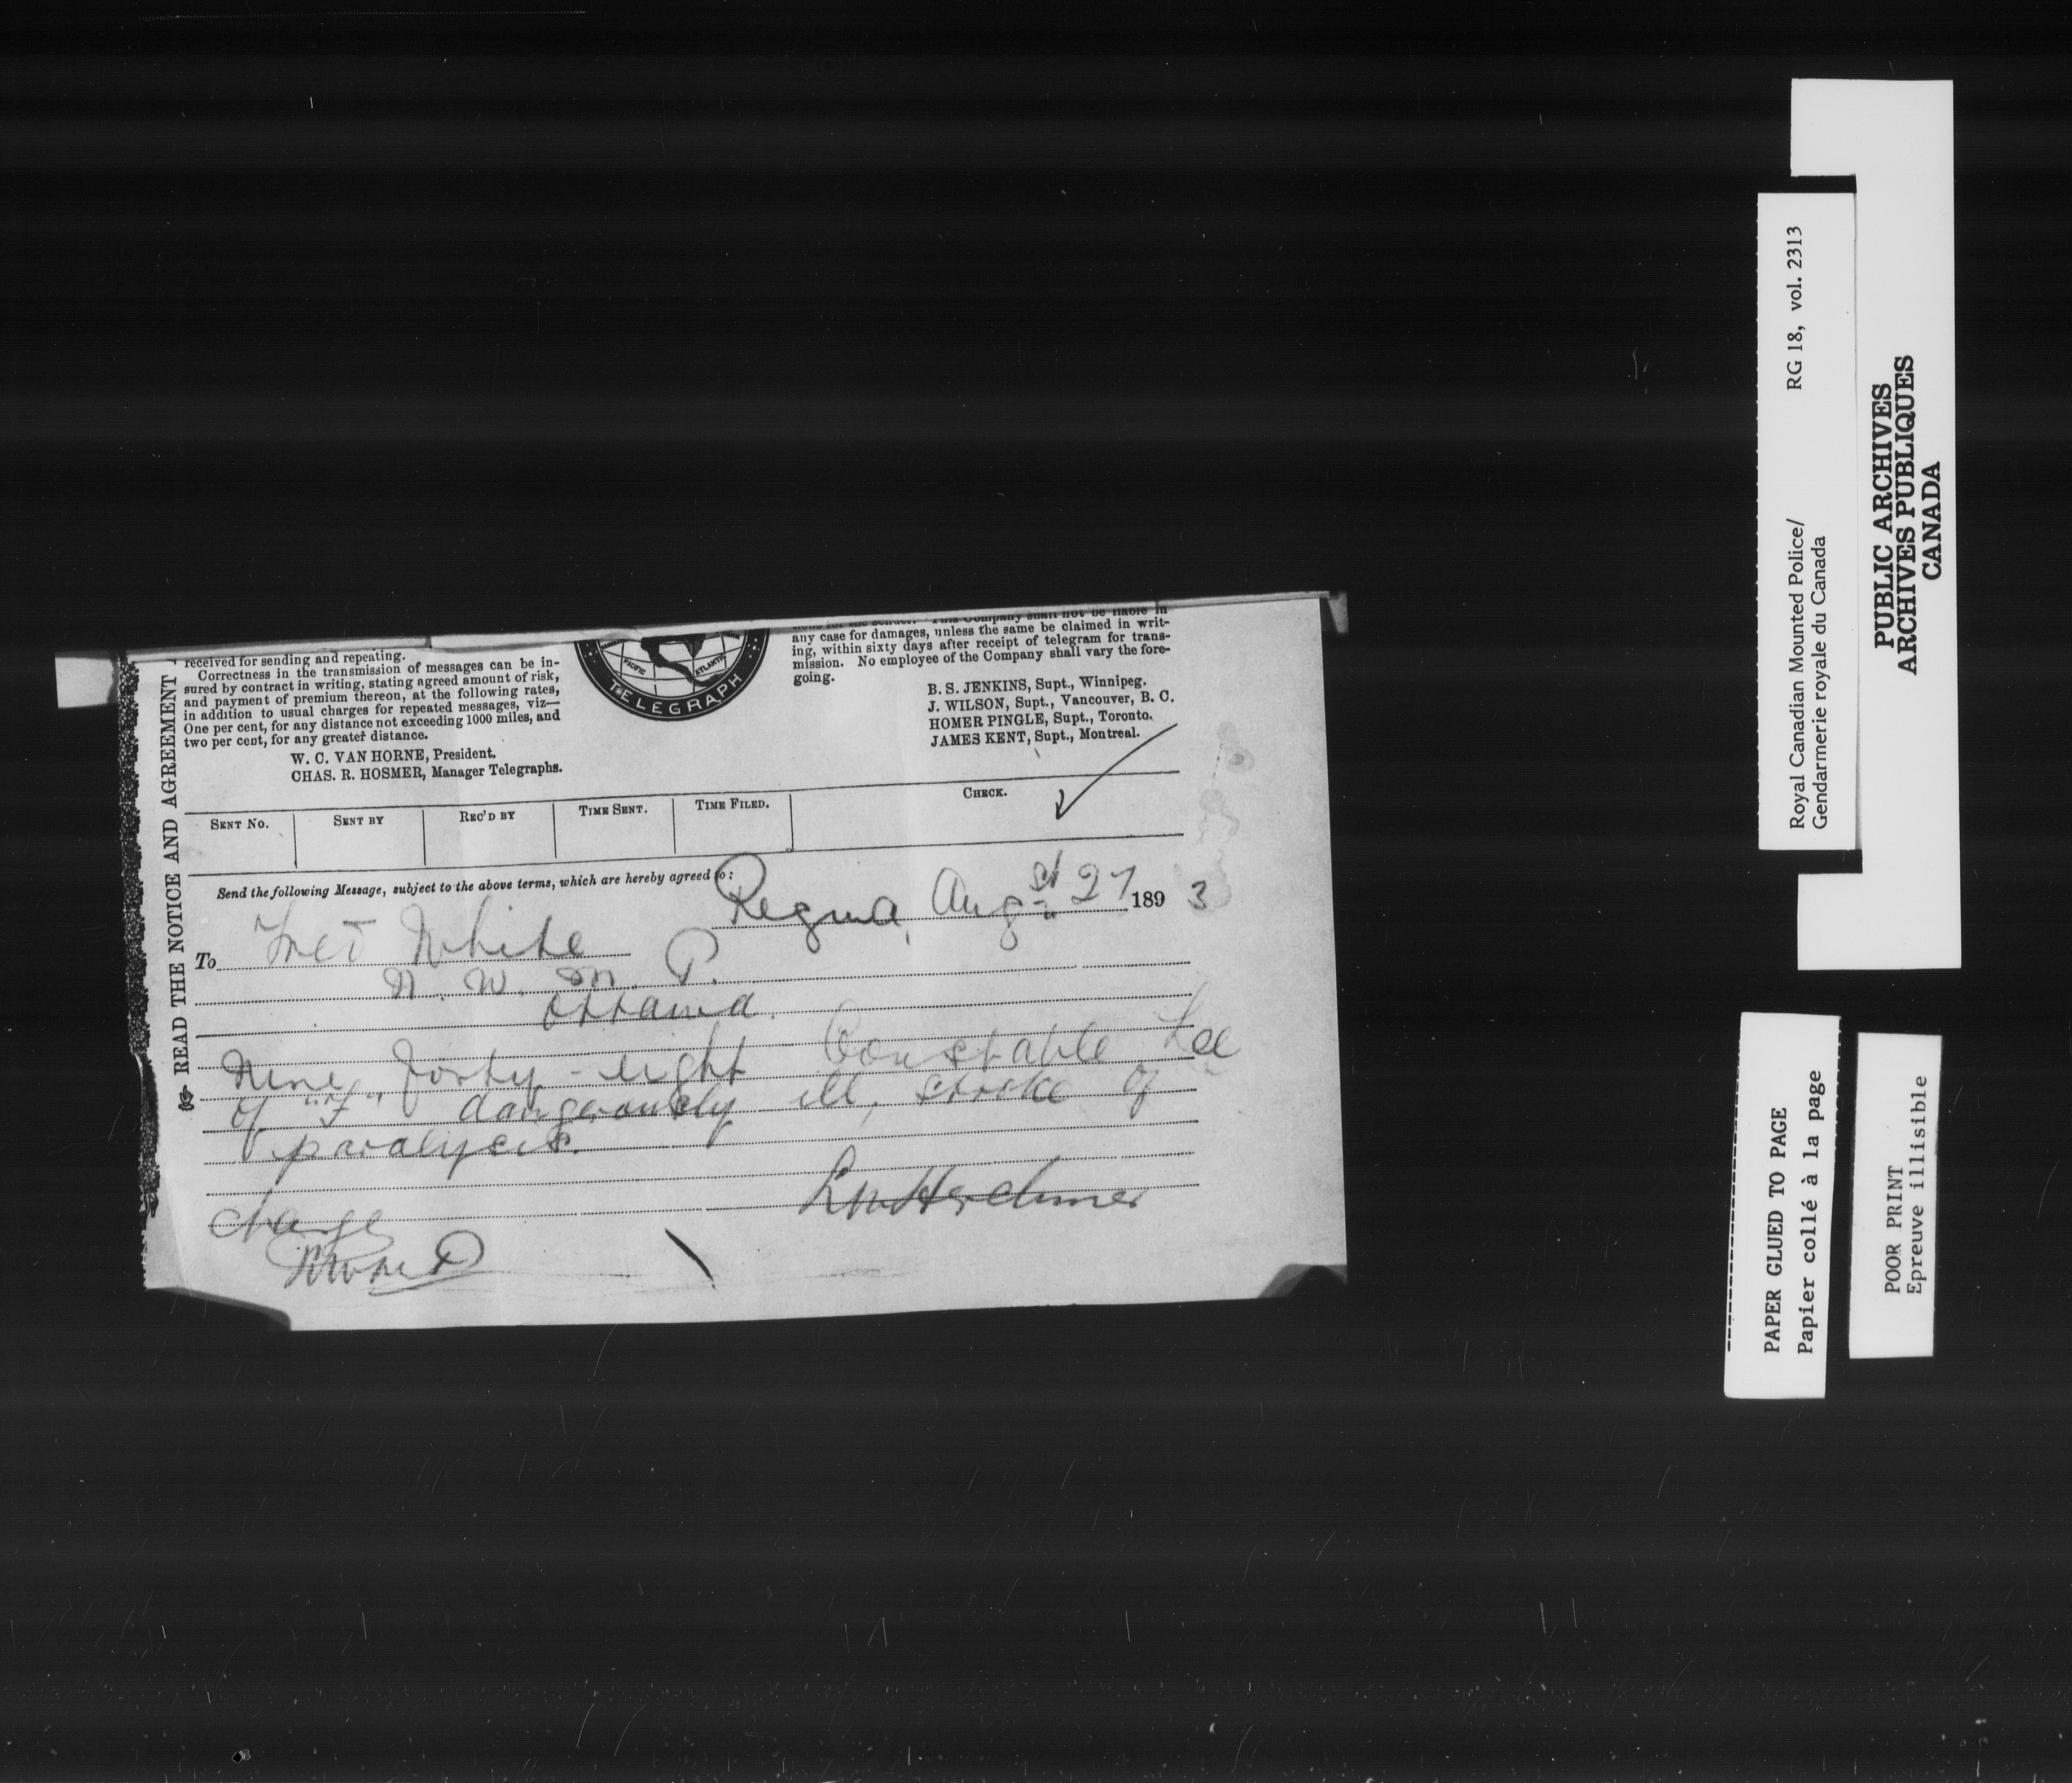 READ THE NOTICE AND AGREEMENT
received for sending and repeating.
Correctness in the transmission of messages can be in-
sured by contract in writing, stating agreed amount of risk,
and payment of premium thereon, at the following rates,
in addition to usual charges for repeated messages, viz—
One per cent, for any distance not exceeding 1000 miles, and
two per cent, for any greater distance.
W. C. VAN HORNE, President.
CHAS. R. HOSMER, Manager Telegraphs.
PACIFIC ATLANTIC
TELEGRAPH
This Company shall not be liable in
any case for damages, unless the same be claimed in writ-
ing, within sixty days after receipt of telegram for trans-
mission. No employee of the Company shall vary the fore-
going.
B. S. JENKINS, Supt., Winnipeg.
J. WILSON, Supt., Vancouver, B. C.
HOMER PINGLE, Supt., Toronto.
JAMES KENT, Supt., Montreal.
SENT NO. SENT BY REC'D BY TIME SENT. TIME FILED. CHECK.
Send the following Message, subject to the above terms, which are hereby agreed to:
Regina, Augst 27 1893
To Fred White
N. W. M. P.
Ottawa.
Nine forty-eight Constable Lee
of "F" dangerously ill, stroke of
paralysis.
LWHerchmer
Charge
NWMP
Royal Canadian Mounted Police/ RG 18, vol. 2313
Gendarmerie royale du Canada
PUBLIC ARCHIVES
ARCHIVES PUBLIQUES
CANADA
PAPER GLUED TO PAGE
Papier collé à la page
POOR PRINT
Epreuve illisible